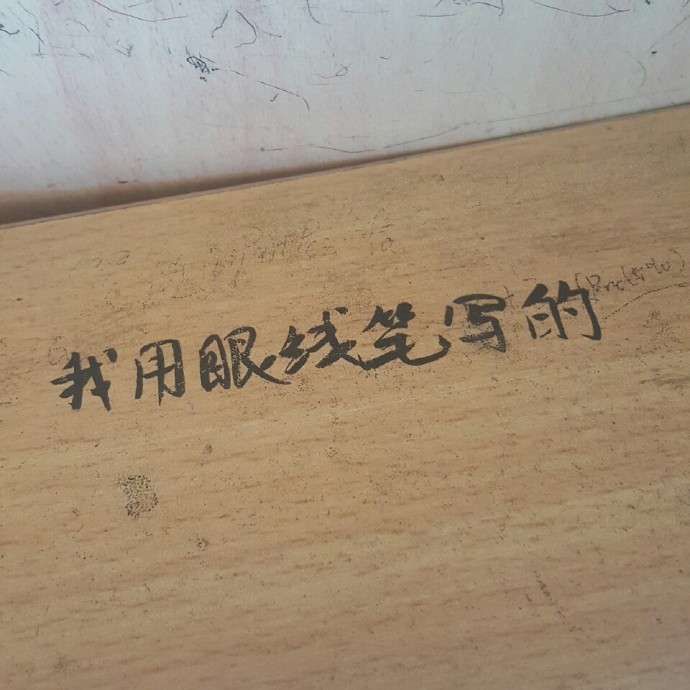 我用眼线笔写的